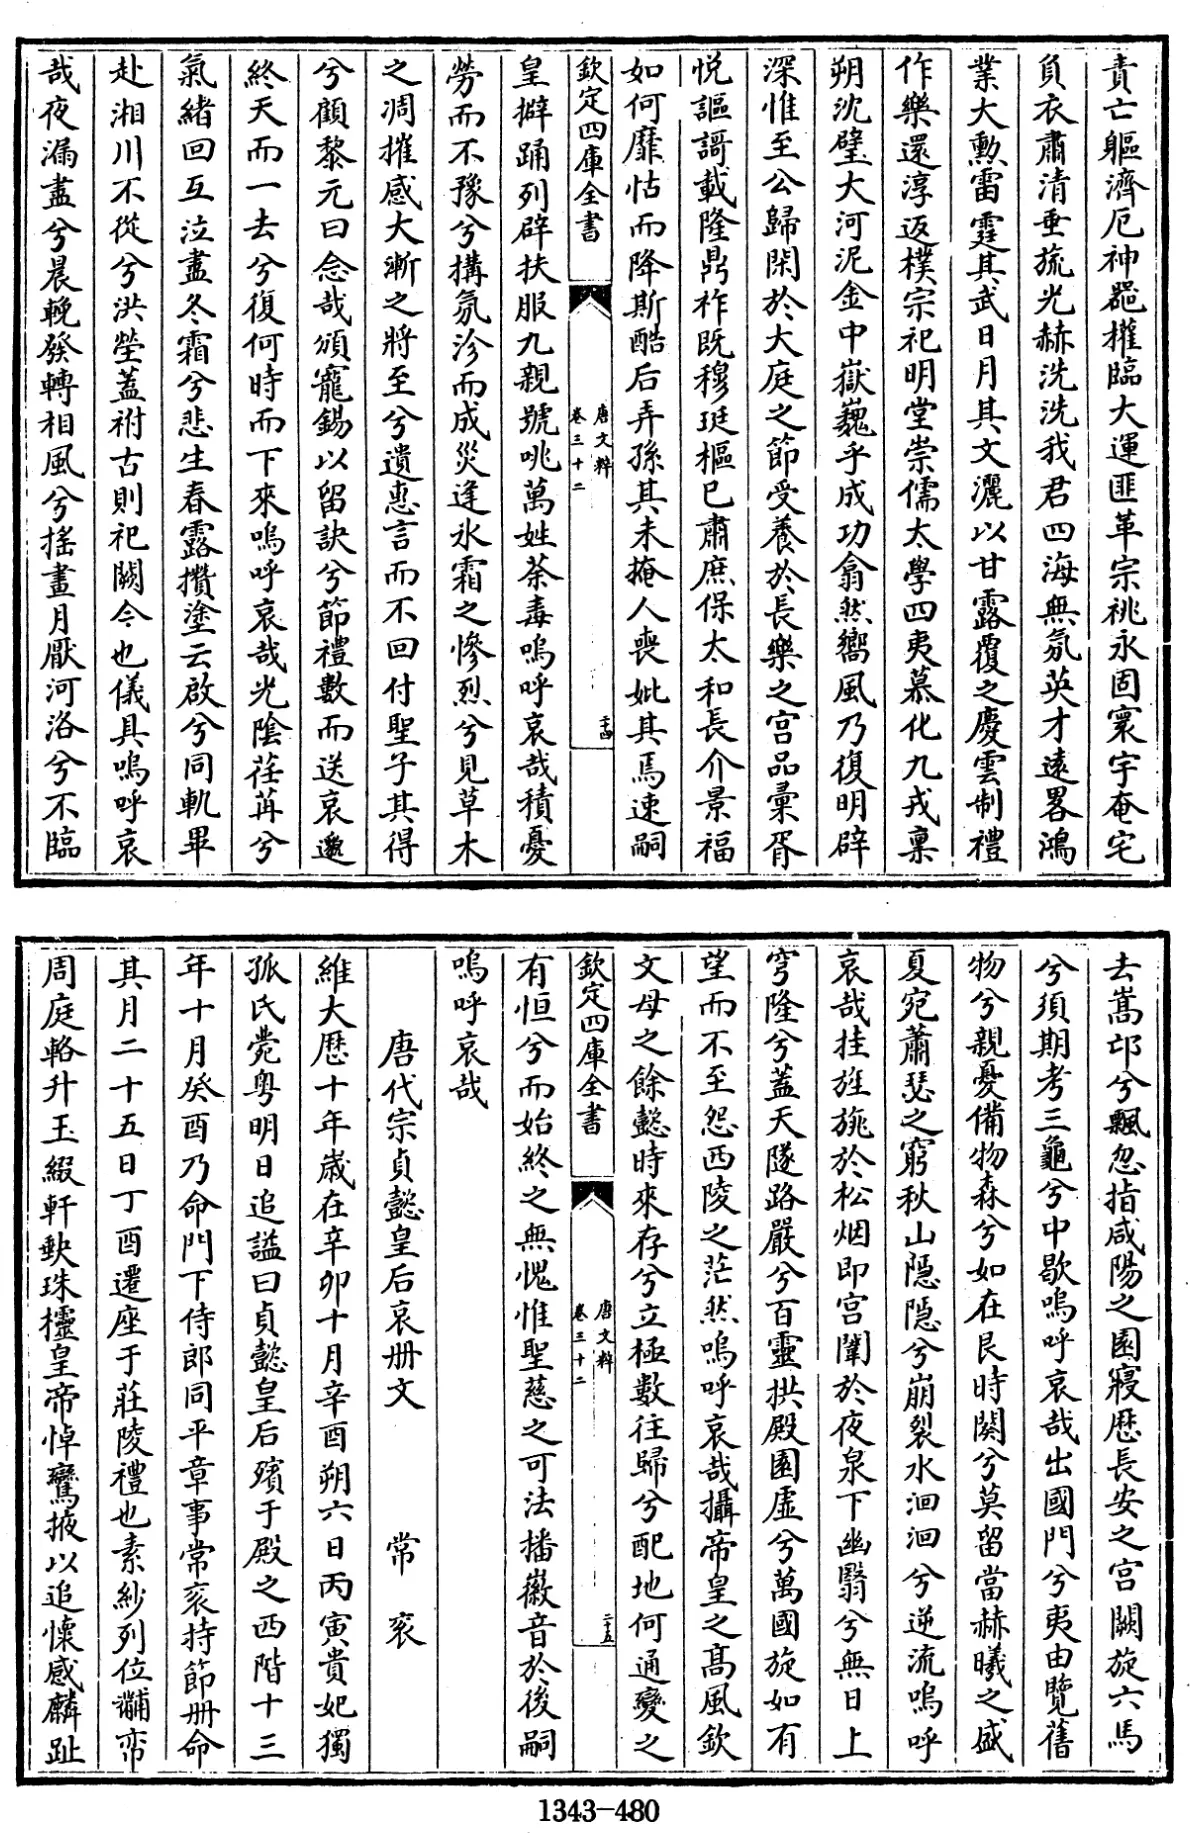 責亡軀濟厄神器權臨大運匪革宗祧永固寰宇奄宅
負扆肅清垂旒光赫洗洗我君四海無氛英才逺畧鴻
業大勲雷霆其武日月其文灑以甘露覆之慶雲制禮
作樂還淳返樸宗祀明堂崇儒太學四夷慕化九戎稟
朔沈璧大河泥金中嶽巍乎成功翕然嚮風乃復明辟
深惟至公歸閑於大庭之節受養於長樂之宫品彚胥
悦謳謌載隆鼎祚既穆珽樞已肅庶保太和長介景福
如何靡怙而降斯酷后弄孫其未掩人喪妣其焉速嗣
欽定四庫全書
唐文粹
卷三十二
二十四
皇擗踊列辟扶服九親號咷萬姓荼毒嗚呼哀哉積憂
勞而不豫兮搆氛沴而成災逢氷霜之慘烈兮見草木
之凋摧感大漸之將至兮遺惠言而不回付聖子其得
兮顧黎元曰念哉頒寵錫以留訣兮節禮數而送哀邈
終天而一去兮復何時而下來嗚呼哀哉光陰荏苒兮
氣緒回互泣盡冬霜兮悲生春露攢塗云啟兮同軌畢
赴湘川不從兮洪塋蓋祔古則祀闕今也儀具嗚呼哀
哉夜漏盡兮晨輓發轉相風兮揺畫月厭河洛兮不臨
去嵩邙兮飄忽指咸陽之園寢歴長安之宫闕旋六馬
兮須期考三龜兮中歇嗚呼哀哉出國門兮夷由覽舊
物兮親憂備物森兮如在艮時闋兮莫留當赫曦之盛
夏宛蕭瑟之窮秋山隠隠兮崩裂水洄洄兮逆流嗚呼
哀哉挂旌旐於松烟即宫闈於夜泉下幽翳兮無日上
穹隆兮蓋天隧路嚴兮百靈拱殿園虚兮萬國旋如有
望而不至怨西陵之茫然嗚呼哀哉攝帝皇之髙風欽
文母之餘懿時來存兮立極數往歸兮配地何通變之
欽定四庫全書
唐文粹
卷三十二
二十五
有恒兮而始終之無愧惟聖慈之可法播徽音於後嗣
嗚呼哀哉
唐代宗貞懿皇后哀册文 常衮
維大歴十年歲在辛卯十月辛酉朔六日丙寅貴妃獨
孤氏薨粤明日追諡曰貞懿皇后殯于殿之西階十三
年十月癸酉乃命門下侍郎同平章事常衮持節册命
其月二十五日丁酉遷座于莊陵禮也素紗列位黼帟
周庭輅升玉綴軒駃珠櫺皇帝悼鸞掖以追懐感麟趾
1343-480